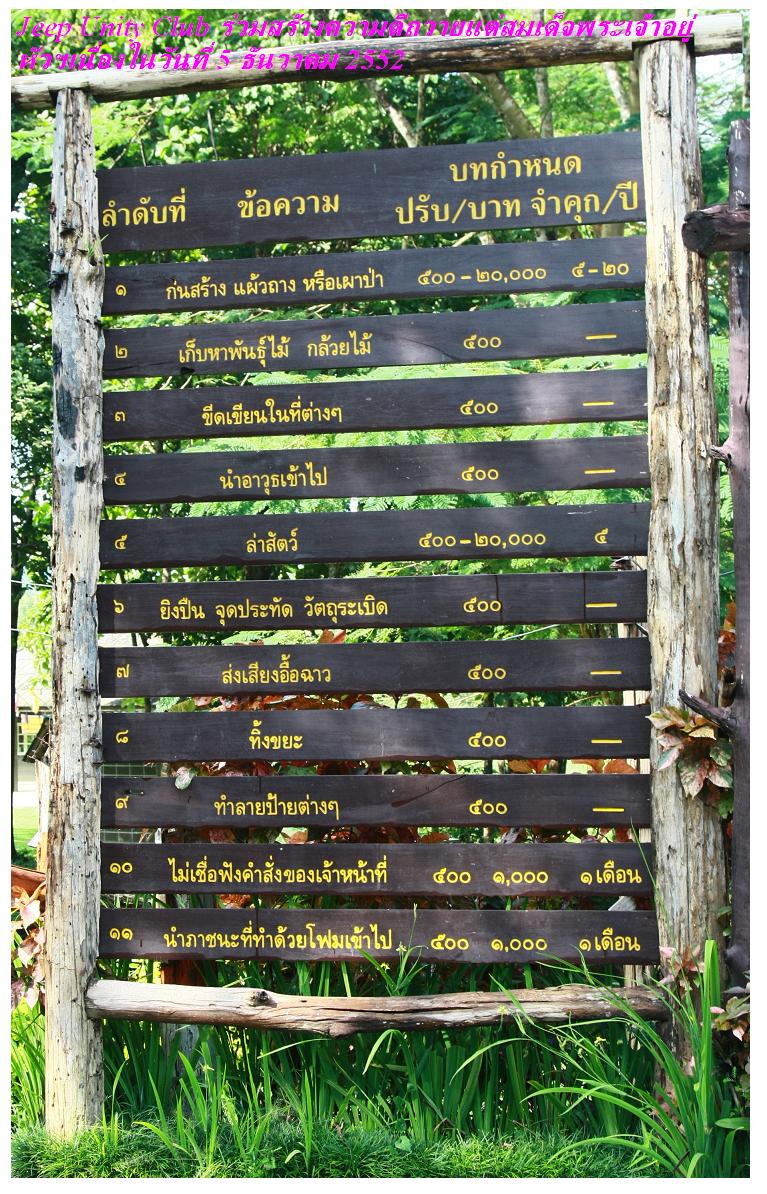 Jeep Unity Club ร่วมสร้างความดีถวายแด่สมเด็จพระเจ้าอยู่
หัวฯเนื่องในวันที่ 5 ธันวาคม 2552
บทกำหนด
ลำดับที่ ข้อความ ปรับ/บาท จำคุก/ปี
๑ ก่นสร้าง แผ้วถาง หรือเผาป่า ๕๐๐-๒๐,๐๐๐ ๕-๒๐
๒ เก็บหาพันธุ์ไม้ กล้วยไม้ ๕๐๐ —
๓ ขีดเขียนในที่ต่างๆ ๕๐๐ —
๔ นำอาวุธเข้าไป ๕๐๐ —
๕ ล่าสัตว์ ๕๐๐-๒๐,๐๐๐ ๕
๖ ยิงปืน จุดประทัด วัตถุระเบิด ๕๐๐ —
๗ ส่งเสียงอื้อฉาว ๕๐๐ —
๘ ทิ้งขยะ ๕๐๐ —
๙ ทำลายป้ายต่างๆ ๕๐๐ —
๑๐ ไม่เชื่อฟังคำสั่งของเจ้าหน้าที่ ๕๐๐ ๑,๐๐๐ ๑ เดือน
๑๑ นำภาชนะที่ทำด้วยโฟมเข้าไป ๕๐๐ ๑,๐๐๐ ๑ เดือน